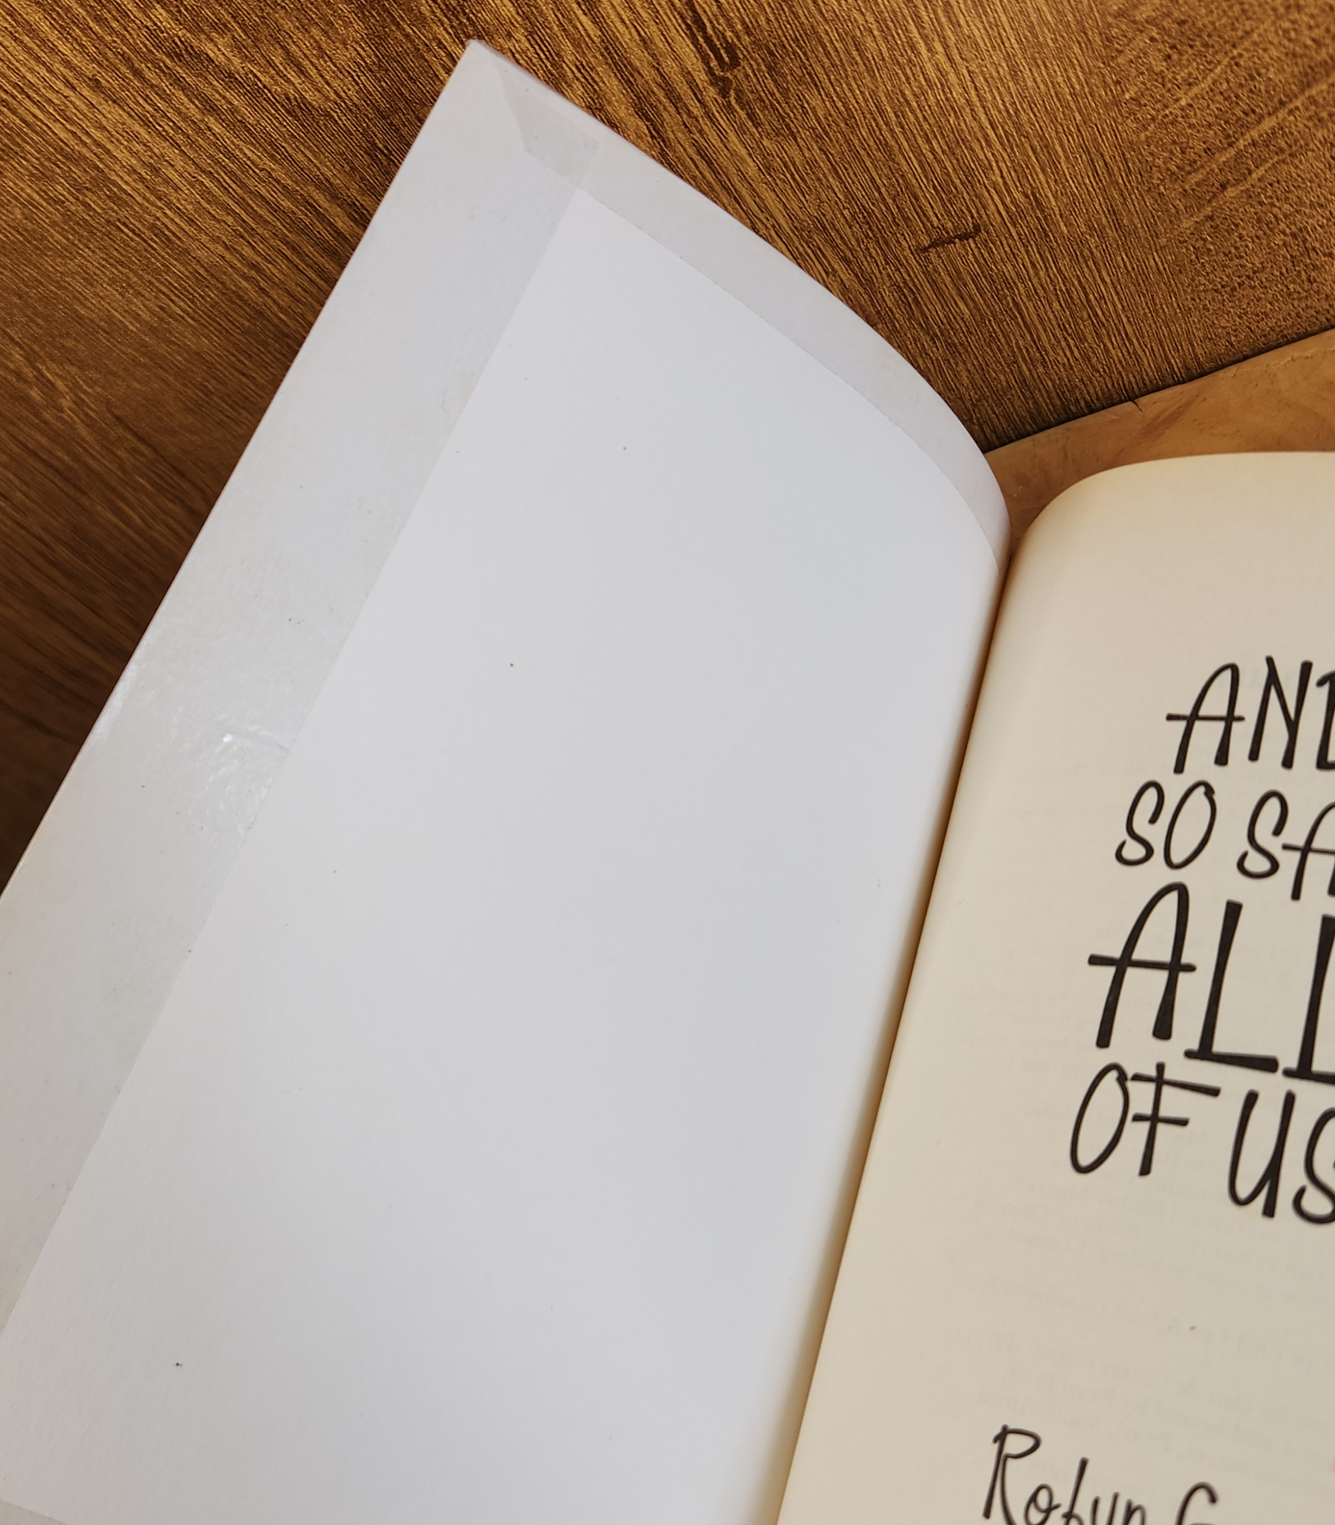 AND
SO SA
ALL
OF US
Robyn G